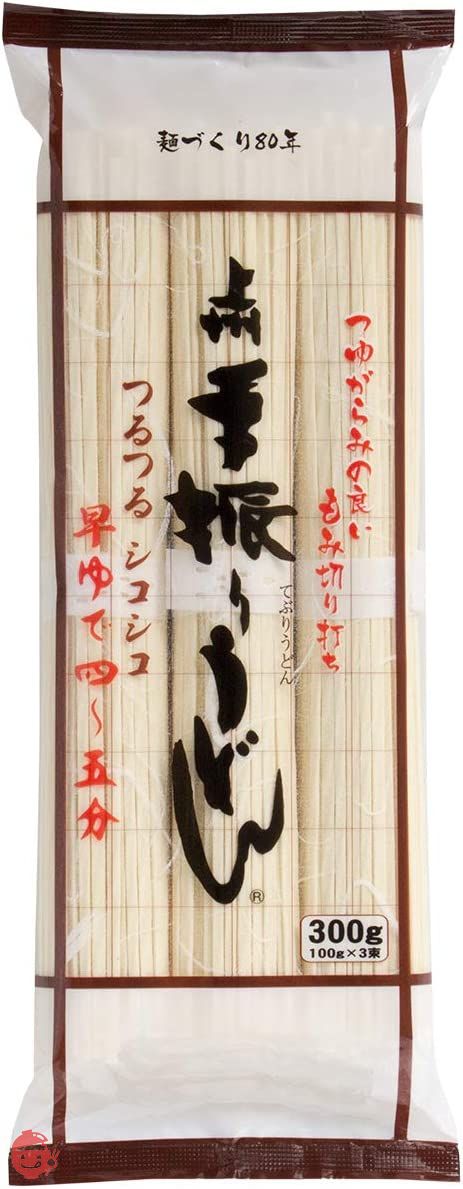 麺づくり80年
つゆがらみの良い
もみ切り打ち
手振りうどん
てぶりうどん
®
つるつる シコシコ
早ゆで四～五分
300g
100g×3束